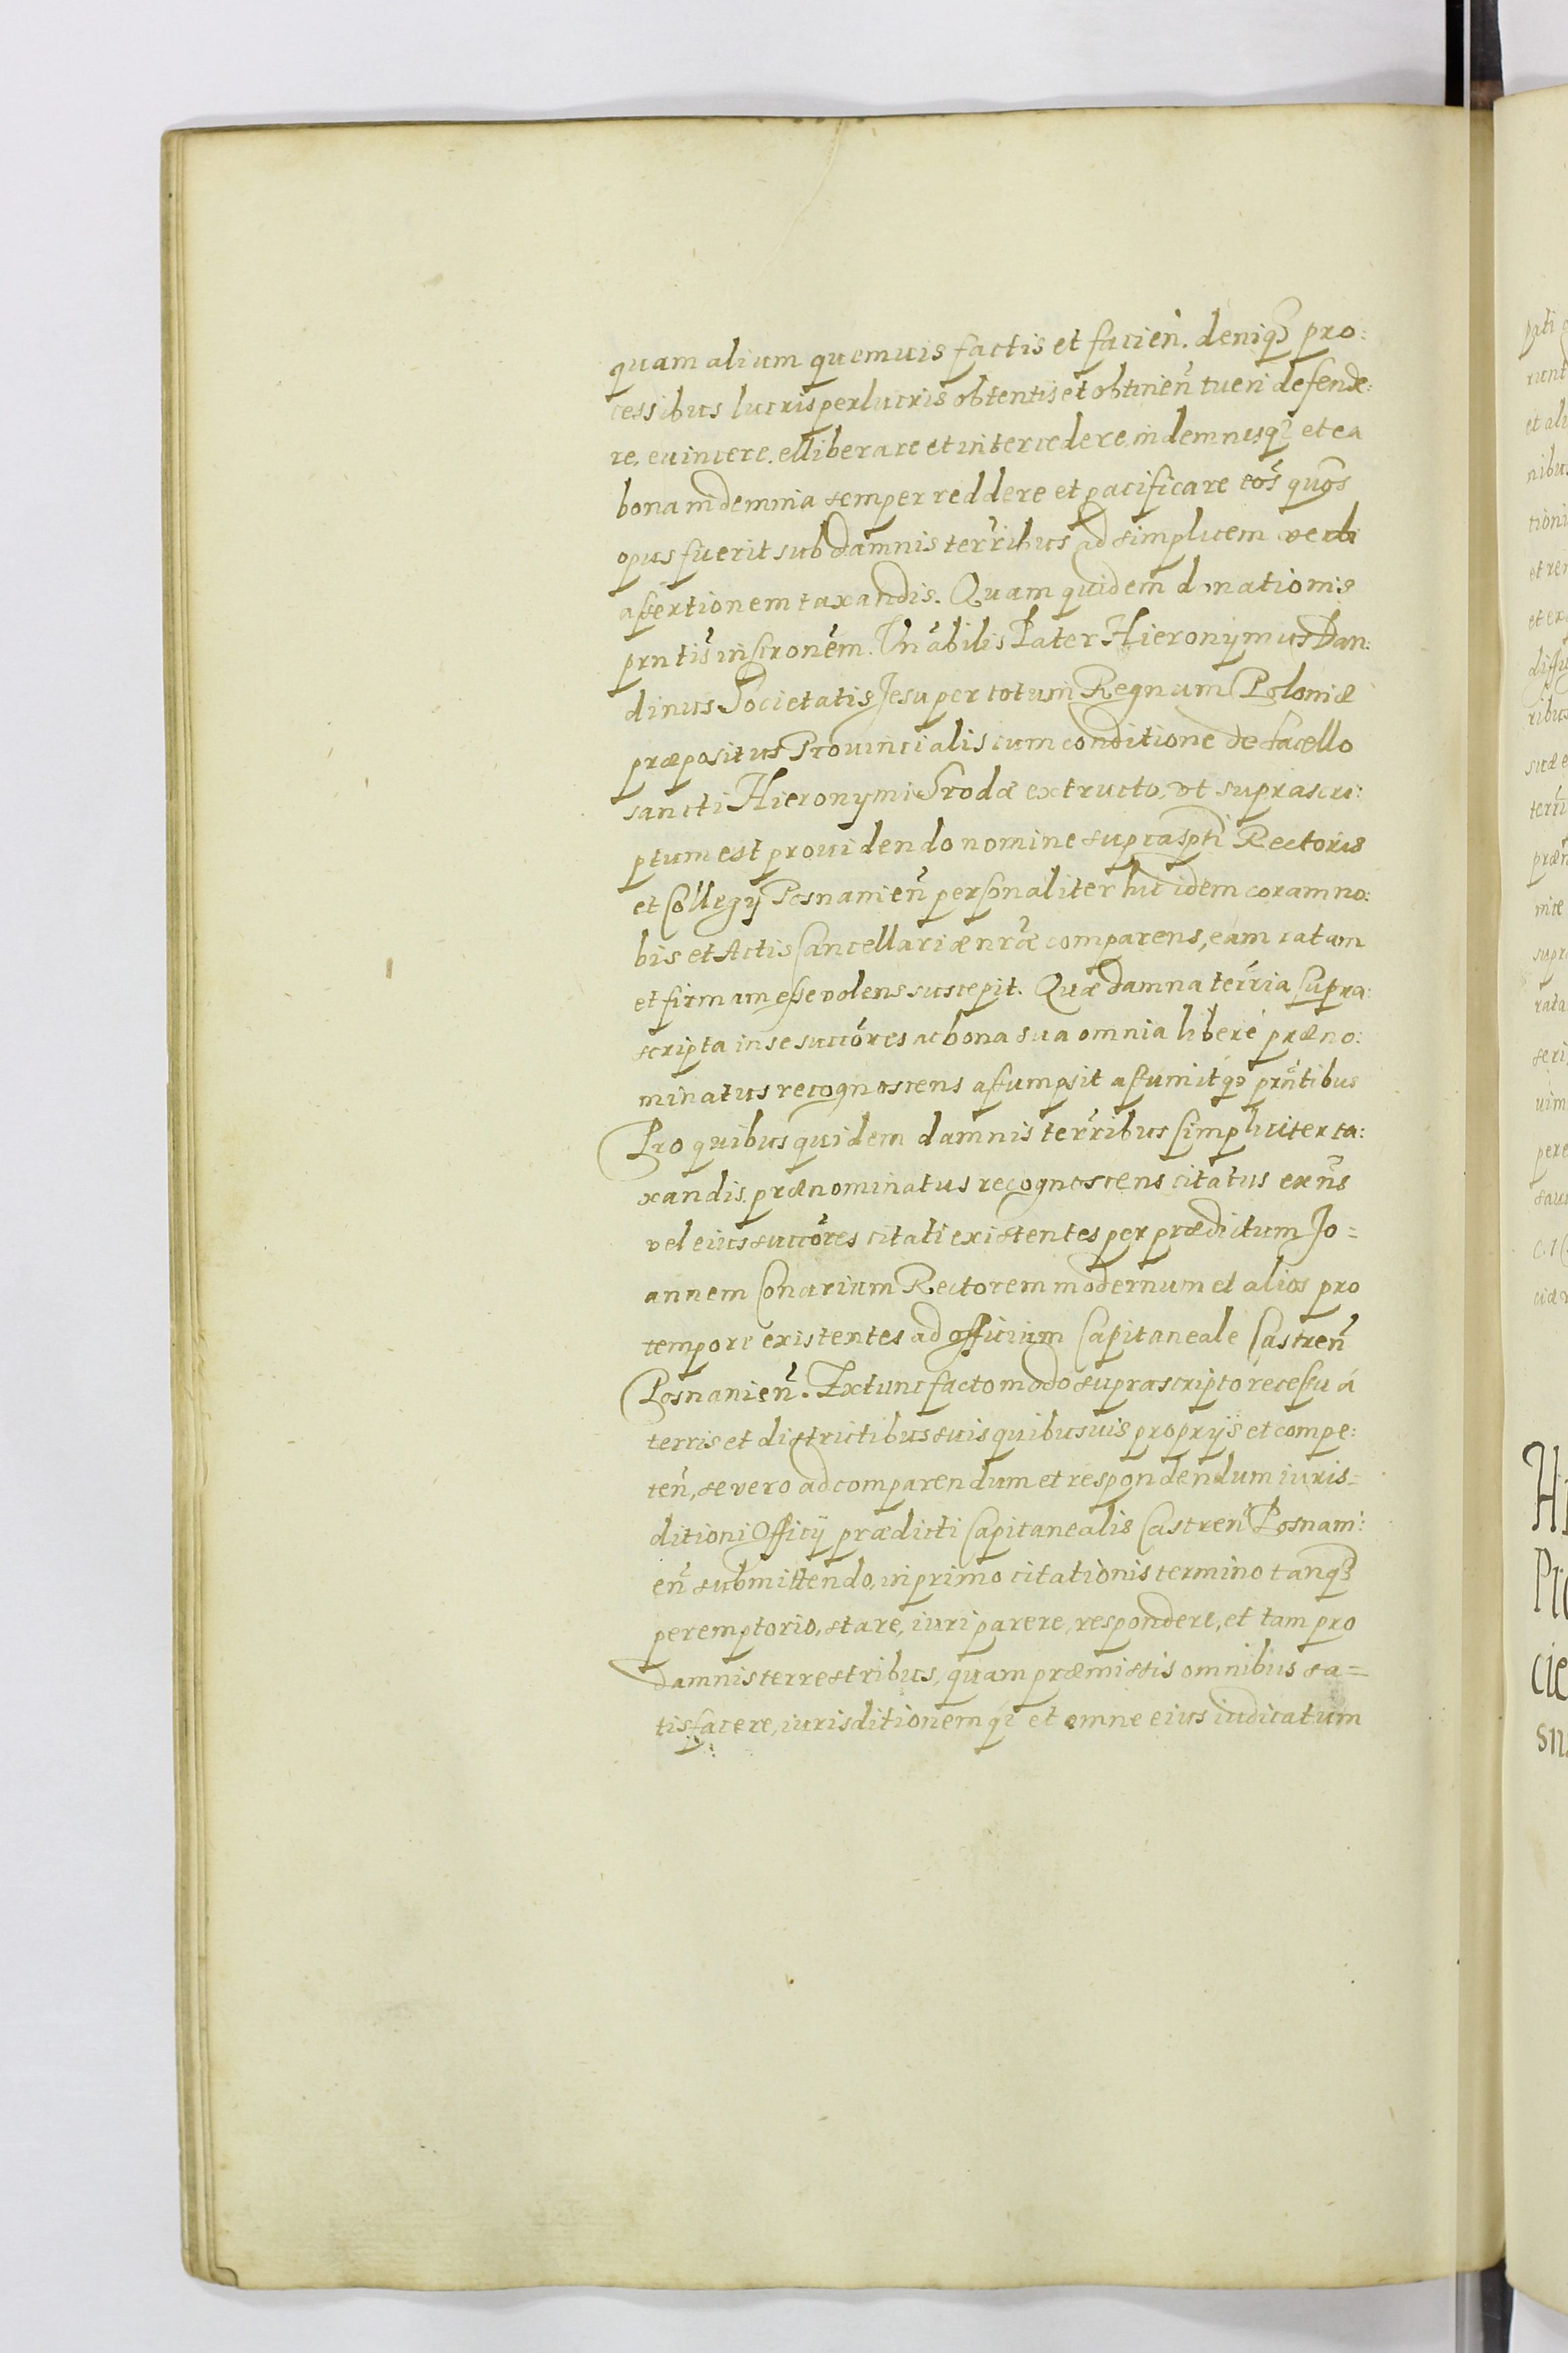 quam alium quemuis factis et facień. deniq3 pro:
cessibus lucris perlucris obtentis et obtineñ tueri defende:
re, euincere, elliberare et intercedere, indemnesq3 et ea
bona indemnia semper reddere et pacificare eós quós
opus fuerit sub damnis terŕibus ad simplicem verbi
assertionem taxandis. Quam quidem donationis
prntis̃ inscronẽm. Vnãbilis Pater Hieronymus Dan:
dinus Societatis Jesu per totum Regnum Poloniæ
præpositus Prouincialis cum conditione de sacello
sancti Hieronymi Srodæ extructo, vt suprascri:
ptum est prouidendo nomine supraspti Rectoris
et Collegij Posnanieñ personaliter hic idem coram no:
bis et Actis Cancellariæ nrã̃e comparens, eam ratam
et firmam esse volens suscepit. Quæ damna terŕia supra:
scripta in se succõres ac bona sua omnia liberé præno:
minatus recognoscens assumpsit assumitq3 prñtibus
Pro quibus quidem damnis terŕibus simpliciter ta:
xandis prænominatus recognoscens citatus exñs
vel eius succõres citati existentes per prædictum Jo=
annem Conarium Rectorem modernum et alios pro
tempore existentes ad officium Capitaneale Castreñ
Posnanieñ. Extunc facto modo suprascripto recessu á
terris et districtibus suis quibusuis proprijs et compe:
teñ, se vero ad comparendum et respondendum iuris=
ditioni Officij prædicti Capitanealis Castreñ Posnani:
eñ submittendo, in primo citationis termino tanq3
peremptorio, stare, iuri parere, respondere, et tam pro
damnis terrestribus, quam præmissis omnibus sa=
tisfacere, iurisditionemq3 et omne eius iudicatum